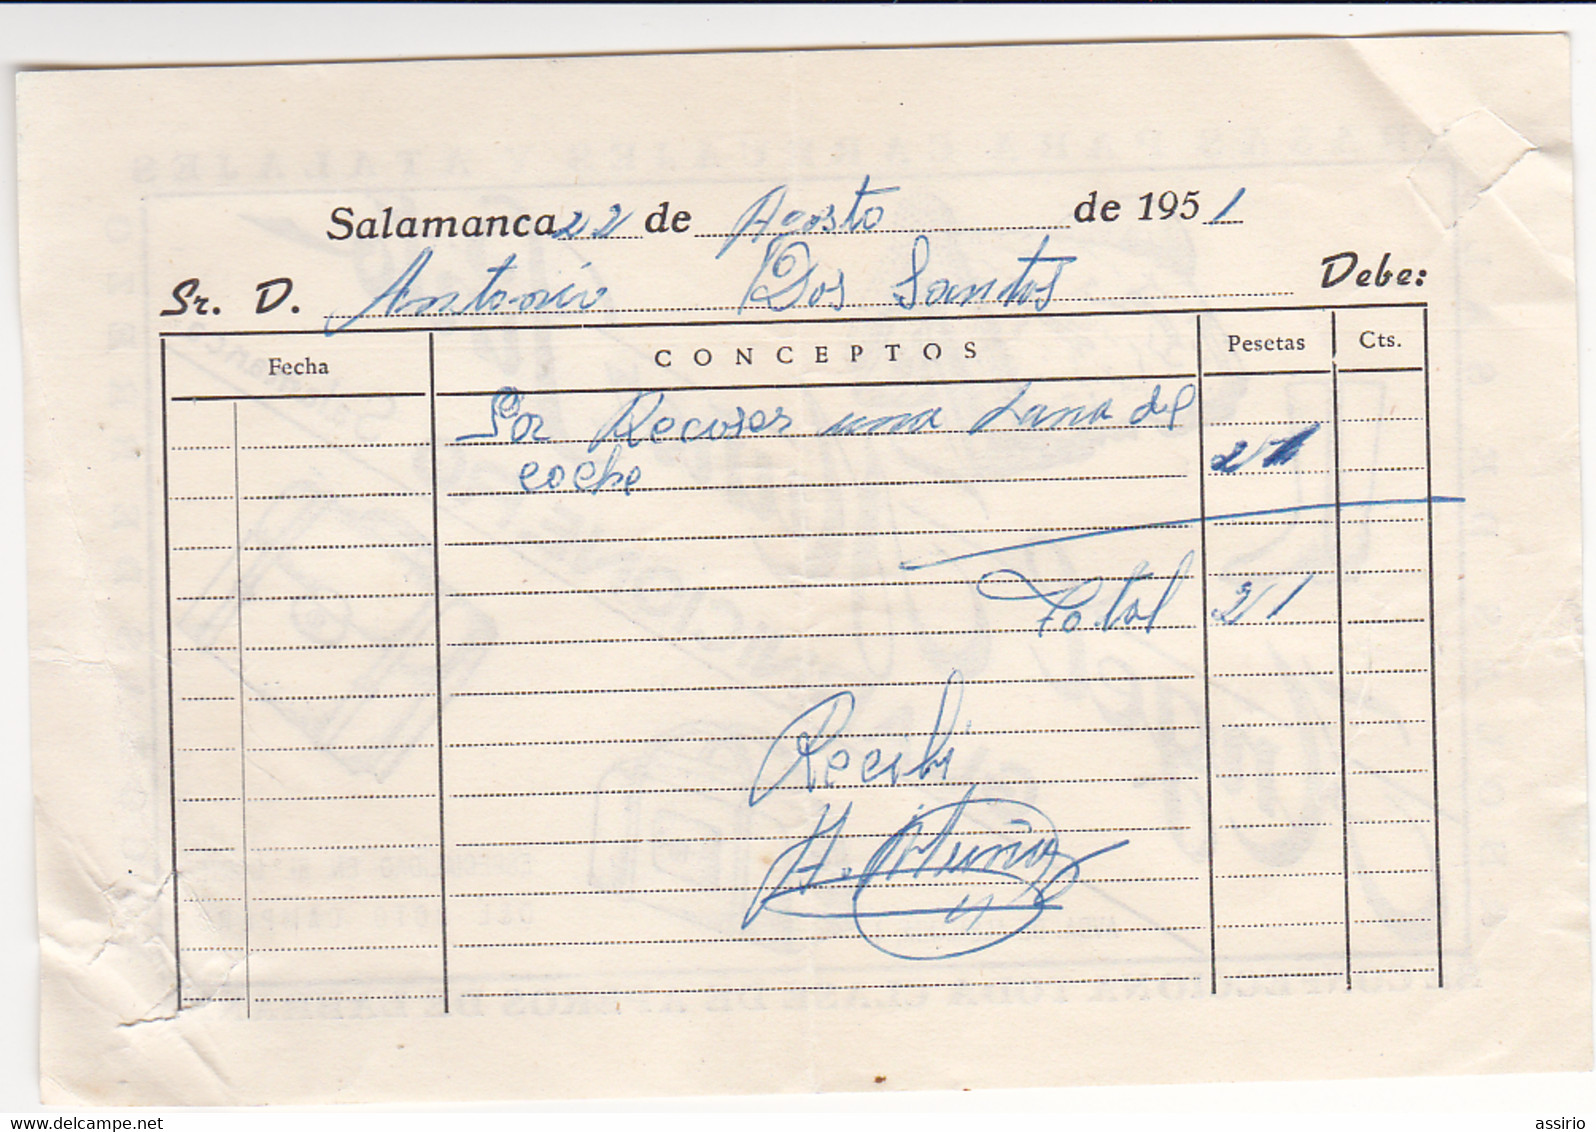 Salamanca 22 de Agosto de 1951
Sr. D. Antonio Dos Santos Debe:
Fecha CONCEPTOS Pesetas Cts.
Por Recoser una Lana del
coche 21
Total 21
Recibi
H. Muñoz
delcampe.net
assirio